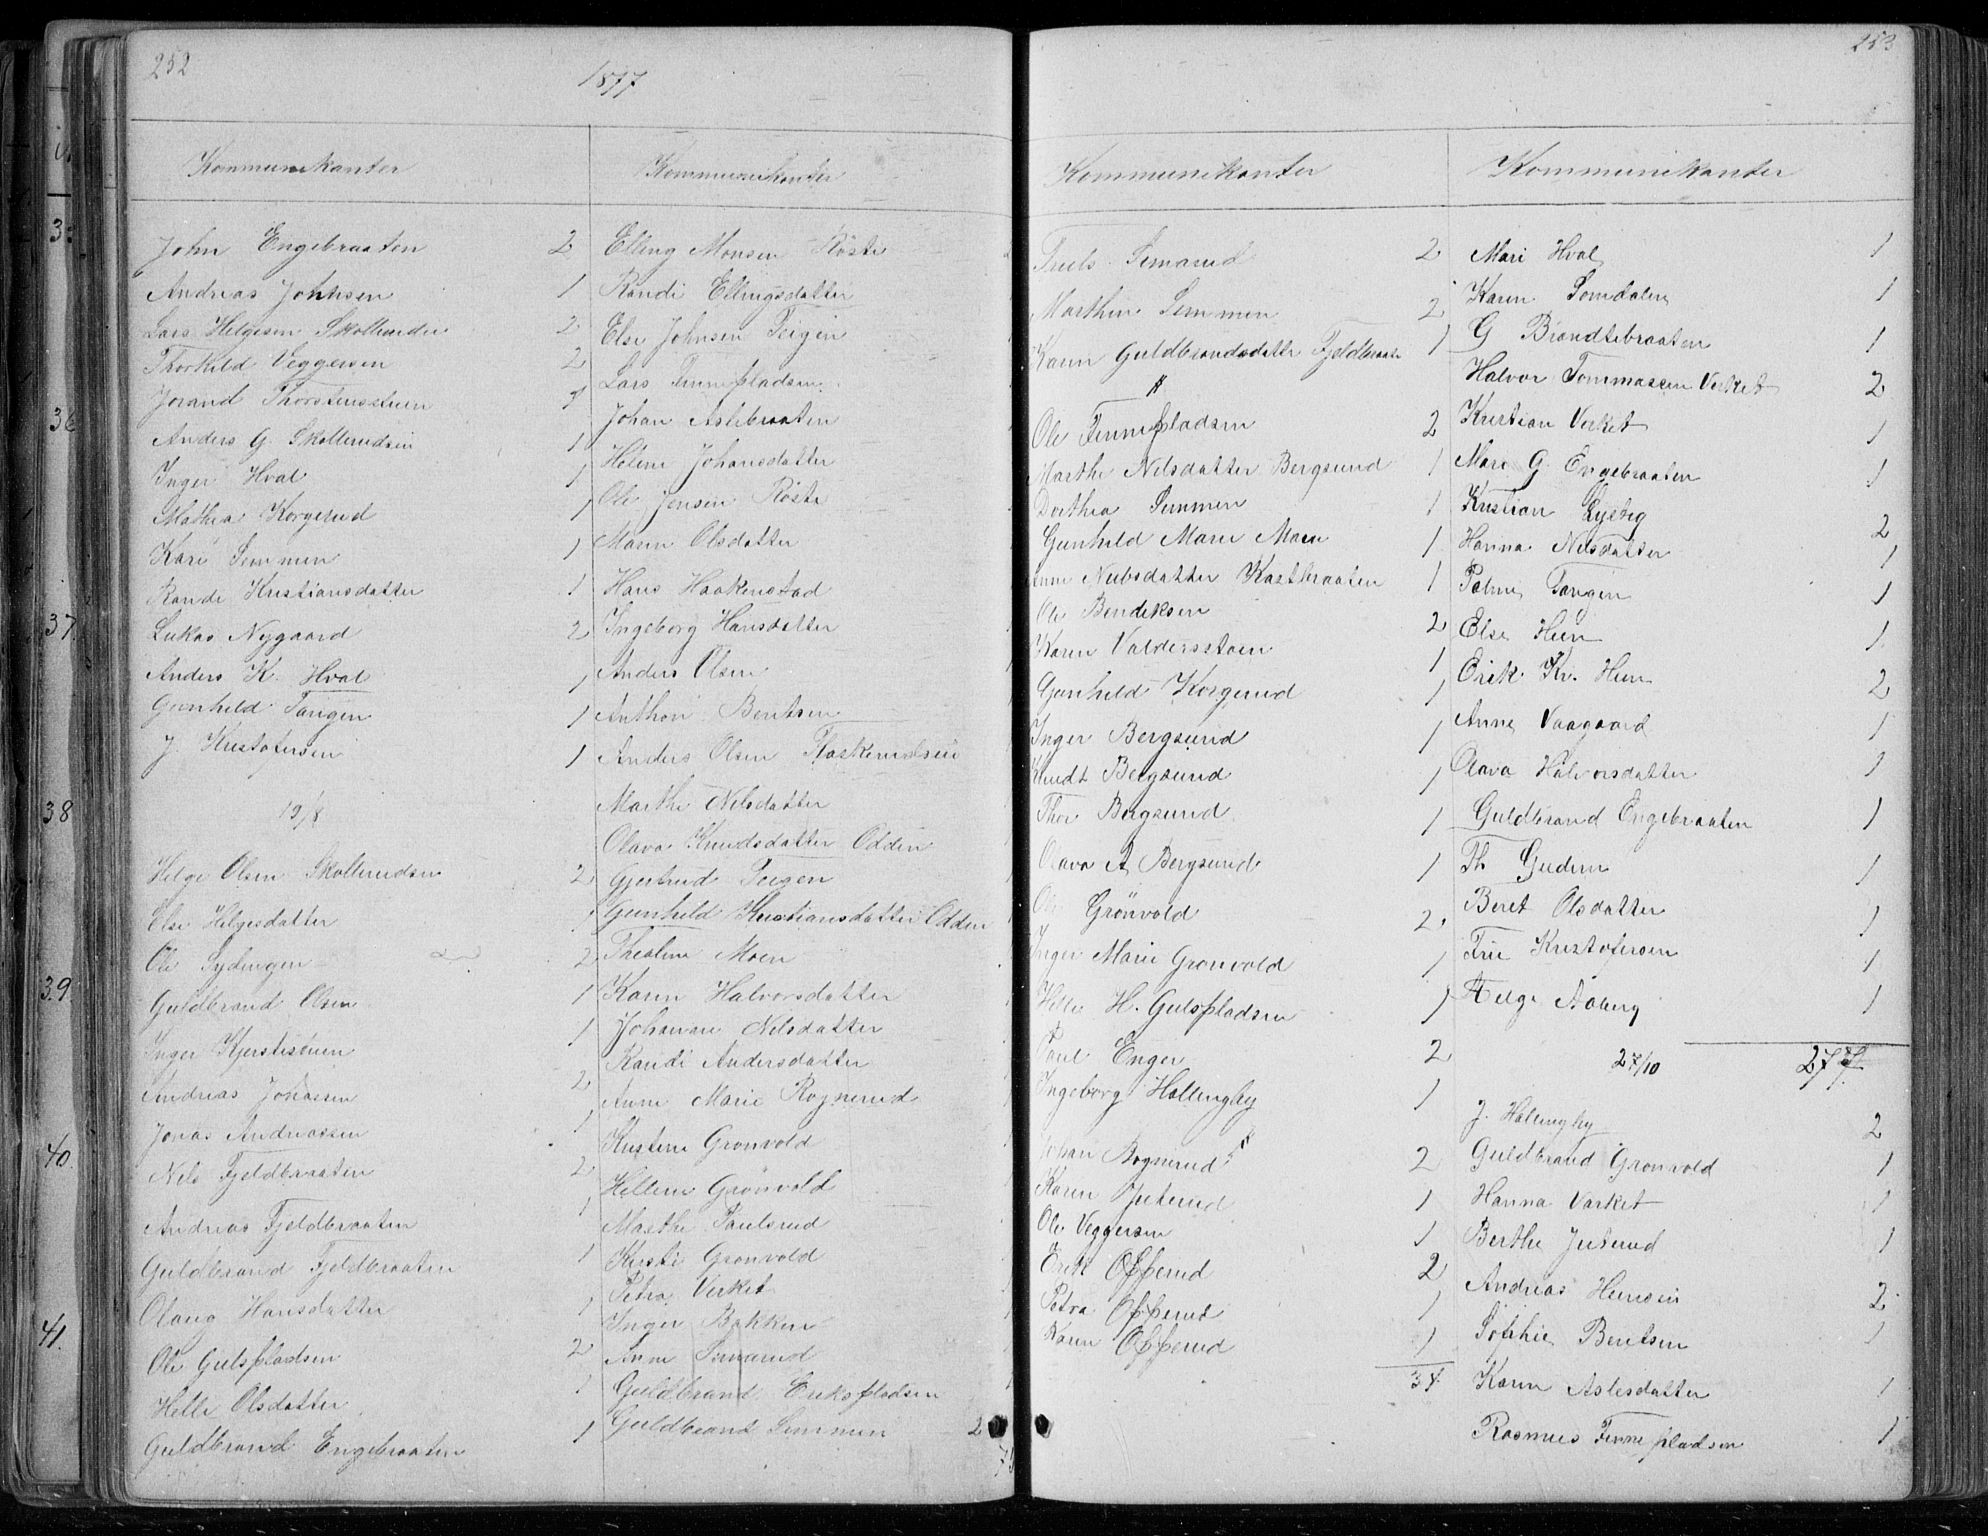 252
1877
Kommunikanter
John Engebraaten 2
Andreas Johnsen 1
Lars Helgesen Skollerudei 2
Thorkild Veggersen 2
Jorand Thorstensstuen 1
Anders G. Skollerudsei 1
Inger Hval 1
Mathea Korgerud 1
Kari Semmen 1
Randi Kristiansdatter 1
Lukas Nygaard 2
Anders K. Hval 1
Gunhild Tangen 1
J. Kristofersen 1
19/8
Helge Olsen Skollerudsei 2
Else Helgesdatter 1
Ole 2
Guldbrand Olsen 1
Inger 1
Andreas Jonassen 2
Jonas Andreassen 1
Nils Fjeldbraaten 2
Andreas Fjeldbraaten 1
Guldbrand Fjeldbraaten 1
Olaug Hansdatter 1
Ole Gulspladsen 2
Helle Olsdatter 1
Guldbrand Engebraaten 1
Kommunikanter
Elling Monsen Röste
Randi Ellingsdatter
Else Johnsen Teigen
Lars Finnepladsen
Johan Aslebraaten
Helene Johansdatter
Ole Jensen Röste
Maren Olsdatter
Hans Haakenstad
Ingeborg Hansdatter
Anders Olsen
Anthon Bentsen
Anders Olsen
Marthe Nilsdatter
Olava Knudsdatter Odden
Gjertrud Teigen
Gunhild Kristiansdatter Odden
Thealine Moen
Karen Halvorsdatter
Johanne Nilsdatter
Randi Andersdatter
Anne Marie Rognerud
Kristene Gronvold
Hellene Grönvold
Marthe Paulsrud
Kirsti Gronvold
Petra Verket
Inger Bakken
Anne Semarud
Guldbrand Erikspladsen
Guldbrand Semmen 2
253
Kommunikanter
Truls Semarud 2
Marthin Semmen 2
Karen Guldbrandsdatter Fjeldbraate 1
Ole Finnepladsen 2
Marthe Nilsdatter Bergsund 1
Dorthea Semmen 1
Gunhild Marie Moen 1
Anne Nubsdatter Kastbraaten 1
Ole Bendiksen 2
Karen Valdersstoen 1
Gunhild Korgerud 1
Inger Bergsund 1
Knudt Bergsund 1
Thor Bergsund 1
Olava A Bergsund 1
Ole Grönvold 2
Inger Marie Gronvold 1
Helle H. Gulspladsen 1
Paul Enger 2
Ingeborg Hallingby 1
Johan Rognerud 2
Karen Juterud 1
Ole Veggersen 1
Erik Opperud 2
Petra Opperud 1
Karen Opperud 1
34
Kommunikanter
Mari Hval 1
Karen Somdalen 1
G Brandtebraaten 1
Halvor Tommassen Verket 2
Kristian Verket 1
Mari G. Engebraaten 1
Kristian Lysbeg 2
Hanna Nilsdatter 1
Palme Tangen 1
Else Heen 1
Erik Kr. Heen 2
Anne Vaagaard 1
Olava Halvorsdatter 1
Guldbrand Engebraaten 1
Th Gudem 1
Beret Olsdatter 1
Frue Kristofersen 1
Helge Aaberg 1
27/10
J. Hallingby 2
Guldbrand Gronvold 1
Hanna Varket 1
Berthe Juterud 1
Andreas Hensen 2
Sophie Bentsen 1
Karen Aslesdatter 1
Rasmus Finnepladsen 1
3
36
37
38
39.
40.
41.